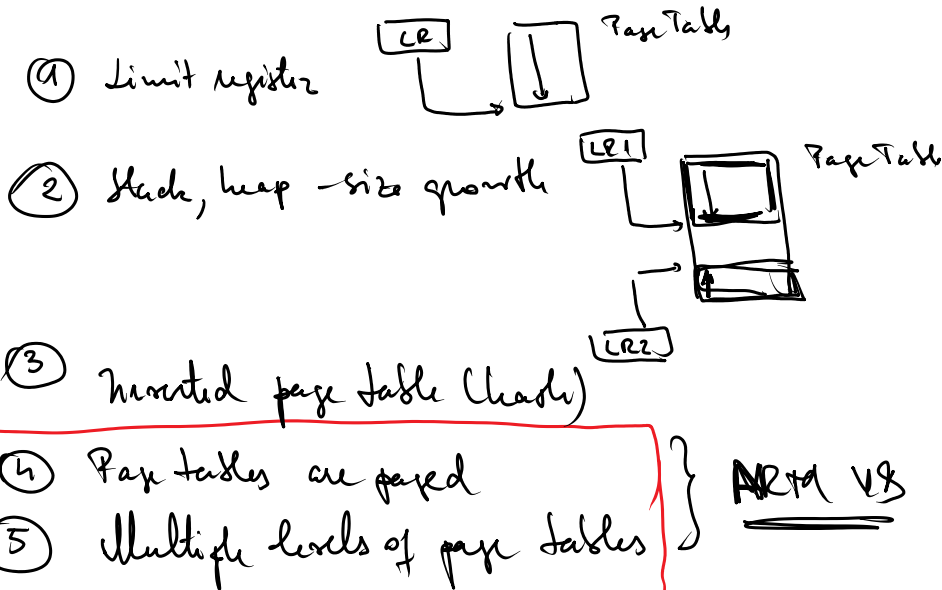 ① Limit register
LR
Page Table
② Stack, heap - size growth
LR1
Page Table
LR2
③ Inverted page table (hash)
④ Page tables are paged
⑤ Multiple levels of page tables
ARM V8